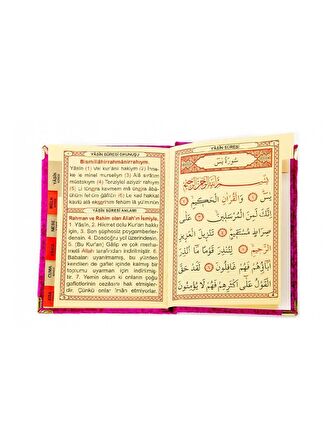 YÂSÎN SÛRESİ OKUNUŞU
Bismillâhirrahmânirrahıym.
Yâsîn (1) Vel kur'âni hakıym (2) İnne-
ke le minel murselıyn (3) Alâ sırâtım
müstekıym (4) Tenzîylel azîyzir rahıym
YÂSÎN SÛRESİ ANLAMI
Rahman ve Rahim olan Allah'ın İsmiyle,
1. Yâsîn, 2. Hikmet dolu Kur'an hakkı
için, 3. Sen şüphesiz peygamberler-
densin. 4. Dosdoğru yol üzerindesin.
5. (Bu Kur'an) Gâlip ve çok merha-
metli Allah tarafından indirilmiştir. 6.
Babaları uyarılmamış, bu yüzden
kendileri de gaflet içinde kalmış bir
toplumu uyarman için indirilmiştir.
7. Yemin olsun ki, onların çoğu
gafletlerinin cezâsını hak etmişler-
dir. Çünkü onlar îmân etmiyorlar.
YÂSÎN
CUMA
YÂSÎN SÛRESİ
سُورَةُ يس
يس ﴿١﴾ وَالْقُرْآنِ الْحَكِيمِ ﴿٢﴾
إِنَّكَ لَمِنَ الْمُرْسَلِينَ ﴿٣﴾ عَلَى
صِرَاطٍ مُسْتَقِيمٍ ﴿٤﴾ تَنْزِيلَ الْعَزِيزِ
الرَّحِيمِ ﴿٥﴾ لِتُنْذِرَ قَوْمًا مَا أُنْذِرَ
آبَاؤُهُمْ فَهُمْ غَافِلُونَ ﴿٦﴾ لَقَدْ حَقَّ
الْقَوْلُ عَلَى أَكْثَرِهِمْ فَهُمْ لَا يُؤْمِنُونَ